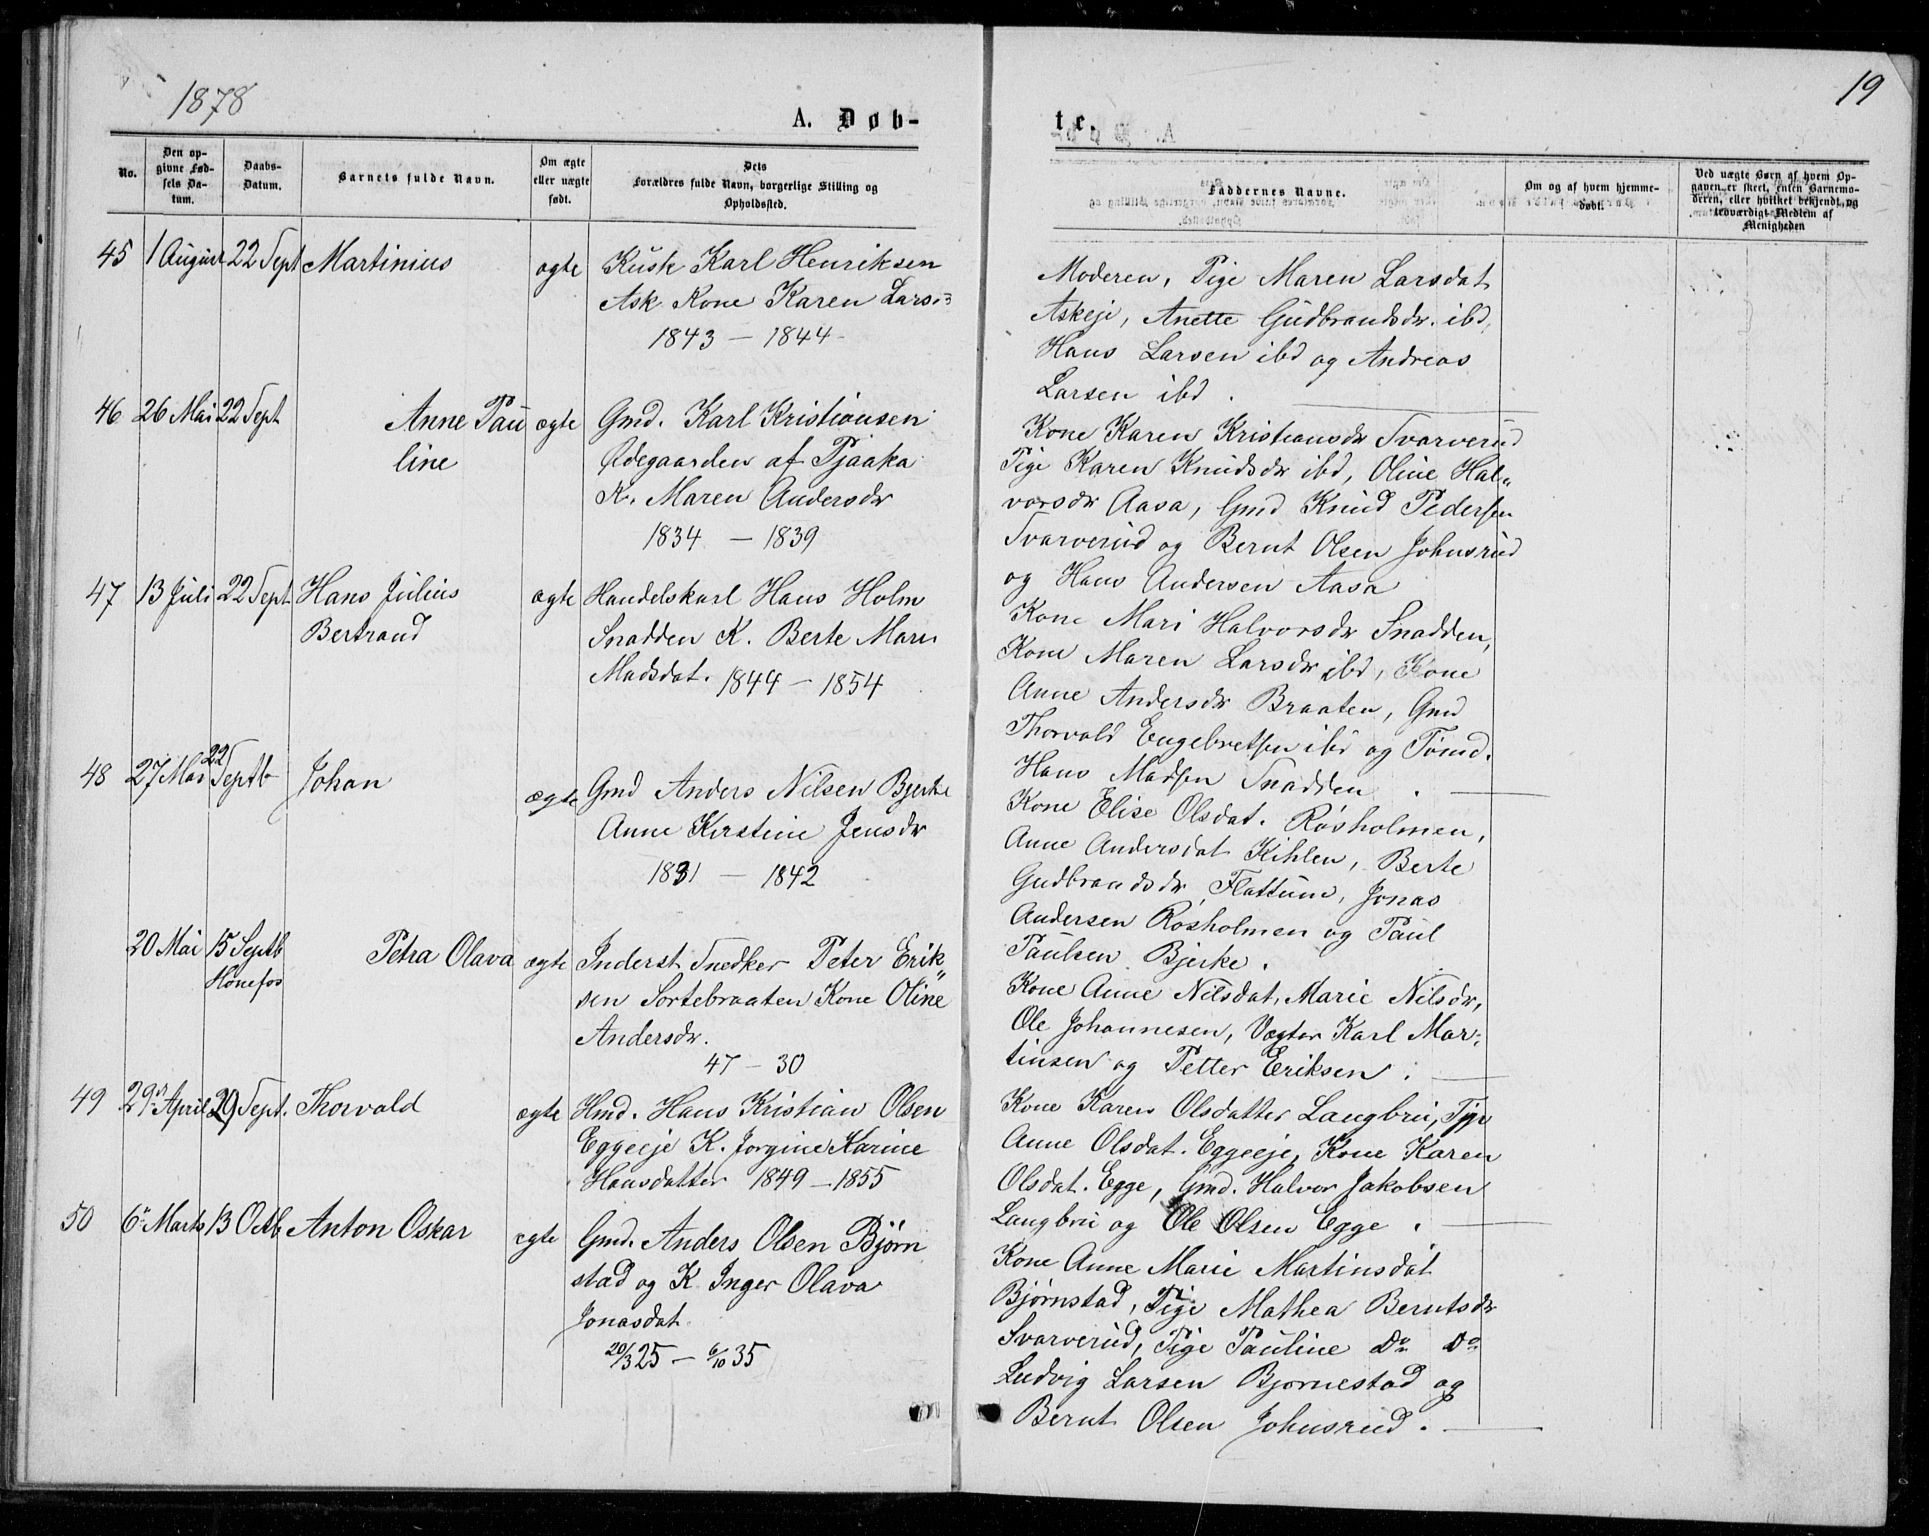 1878
19
A. Døb-
te.
No.
Den op-
givne Fød-
sels Da-
tum.
Daabs-
Datum.
Barnets fulde Navn.
Om ægte
eller uægte
født.
Dets
Forældres fulde Navn, borgerlige Stilling og
Opholdssted.
Faddernes Navne.
Om og af hvem hjemme-
døbt.
Ved uægte Børn af hvem Op-
gaven er skeet, enten Barnemo-
deren, eller hvilket bekjendt og
troværdigt Medlem af
Menigheden
45 1 August 22 Sept Martinius ægte Kusk Karl Henriksen
Ask Kone Karen Lars.
1843 - 1844
Moderen, Pige Maren Larsdat
Askeje, Anette Gudbrandsdr. ibd,
Hans Larsen ibd og Andreas
Larsen ibd.
46 26 Mai 22 Sept Anne Pau ægte Gmd. Karl Kristiansen
line Ødegaarden af Pjaaka
K. Maren Andersdr
1834 - 1839
Kone Karen Kristiansdr Svarverud
Pige Karen Knudsdr ibd, Oline Hal„
vorsdr Aasa, Gmd Knud Pedersen
Svarverud og Bernt Olsen Johnsrud
og Hans Andersen Aasa
47 13 Juli 22 Sept Hans Julius ægte Handelskarl Hans Holm
Bertrand Snadden K. Berte Marie
Madsdat. 1844 - 1854
Kone Mari Halvorsdr Snadden,
Kone Maren Larsdr ibd, Kone
Anne Andersdr Braaten, Gmd
Thorvald Engebretsen ibd og Tømd.
Hans Madsen Snadden.
48 27 Mai 22 Septb Johan ægte Gmd Anders Nilsen Bjerke
Anne Kirstine Jensdr
1831 - 1842
Kone Elise Olsdat. Røsholmen,
Anne Andersdat Kihlen, Berte
Gudbrandsdr, Flattum, Jonas
Andersen Røsholmen og Paul
Paulsen Bjerke.
20 Mai 15 Septb Petra Olava ægte Inderst Snedker Peter Erik„
Hønefos sen Sortebraaten Kone Oline
Andersdr.
47 - 30
Kone Anne Nilsdat, Marie Nilsdr,
Ole Johannesen, Vægter Karl Mar„
tinsen og Petter Eriksen.
49 29de April 29 Sept. Thorvald ægte Hmd. Hans Kristian Olsen
Eggeeje K. Jorgine Karine
Hansdatter 1849 - 1855
Kone Karen Olsdatter Langbru, Pige
Anne Olsdat. Eggeeje, Kone Karen
Olsdat. Egge, Gmd. Halvor Jakobsen
Langbru og Ole Olsen Egge.
50 6te Marts 13 Octb Anton Oskar ægte Gmd. Anders Olsen Bjørn
stad og K Inger Olava
Jonasdat.
20/3 25 - 6/10 35
Kone Anne Marie Martinsdat
Bjørnstad, Pige Mathea Berntsdr
Svarverud, Pige Pauline Do Do
Ludvig Larsen Bjørnestad og
Bernt Olsen Johnsrud.